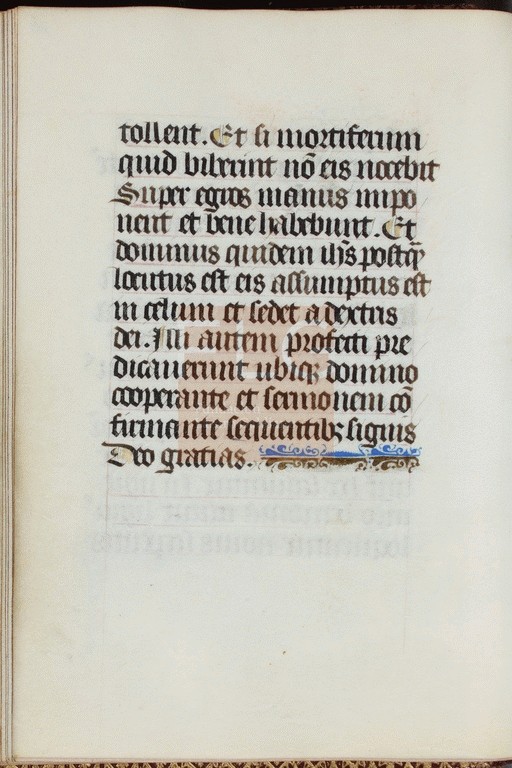 tollent. Et si mortiferum
quid biberint nō eis nocebit
Super egros manus impo
nent et bene habebunt. Et
dominus quidem ihs postq̄
locutus est eis assumptus est
in celum et sedet a dextris
dei. Illi autem profecti pre
dicauerunt ubiqꝫ domino
cooperante et sermonem cō
firmante sequentibꝫ signis
Deo gratias.